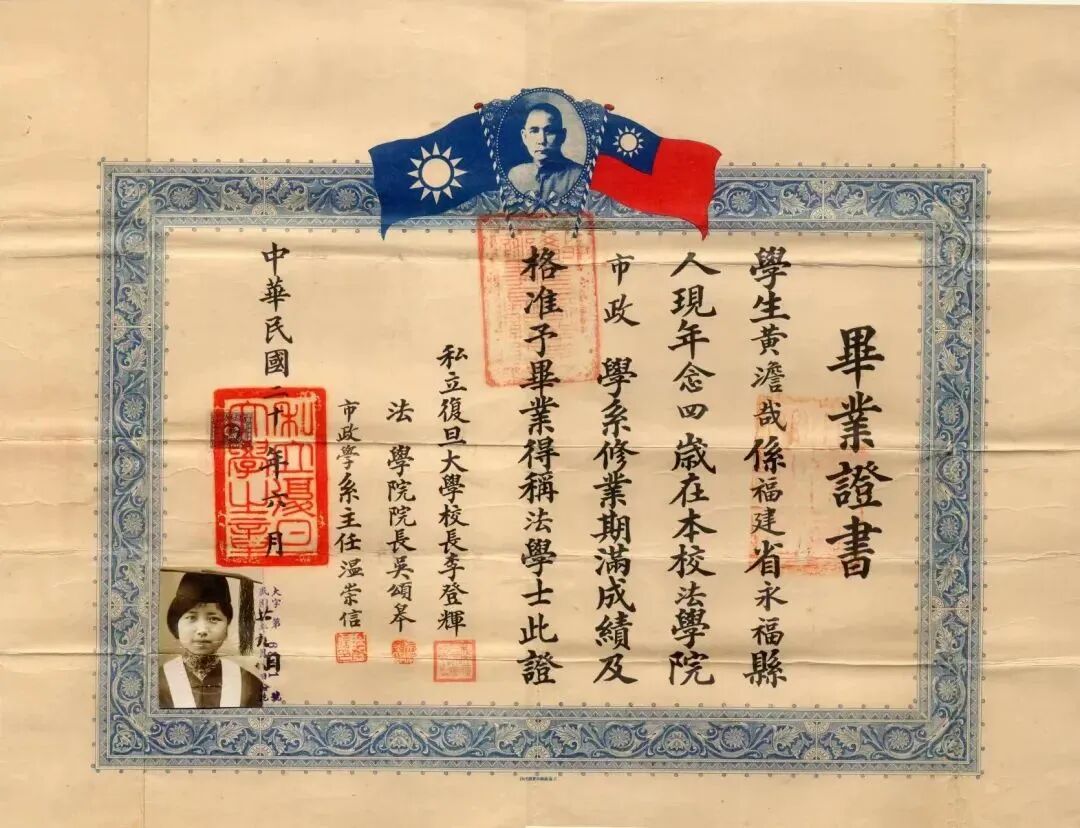 畢業證書
學生黃澹哉係福建省永福縣
人現年念四歲在本校法學院
市政 學系修業期滿成績及
格准予畢業得稱法學士此證
私立復旦大學校長李登輝
法 學院院長吳頌皋
市政學系主任溫崇信
中華民國二十年六月
私立復旦大學之章
大字第 號